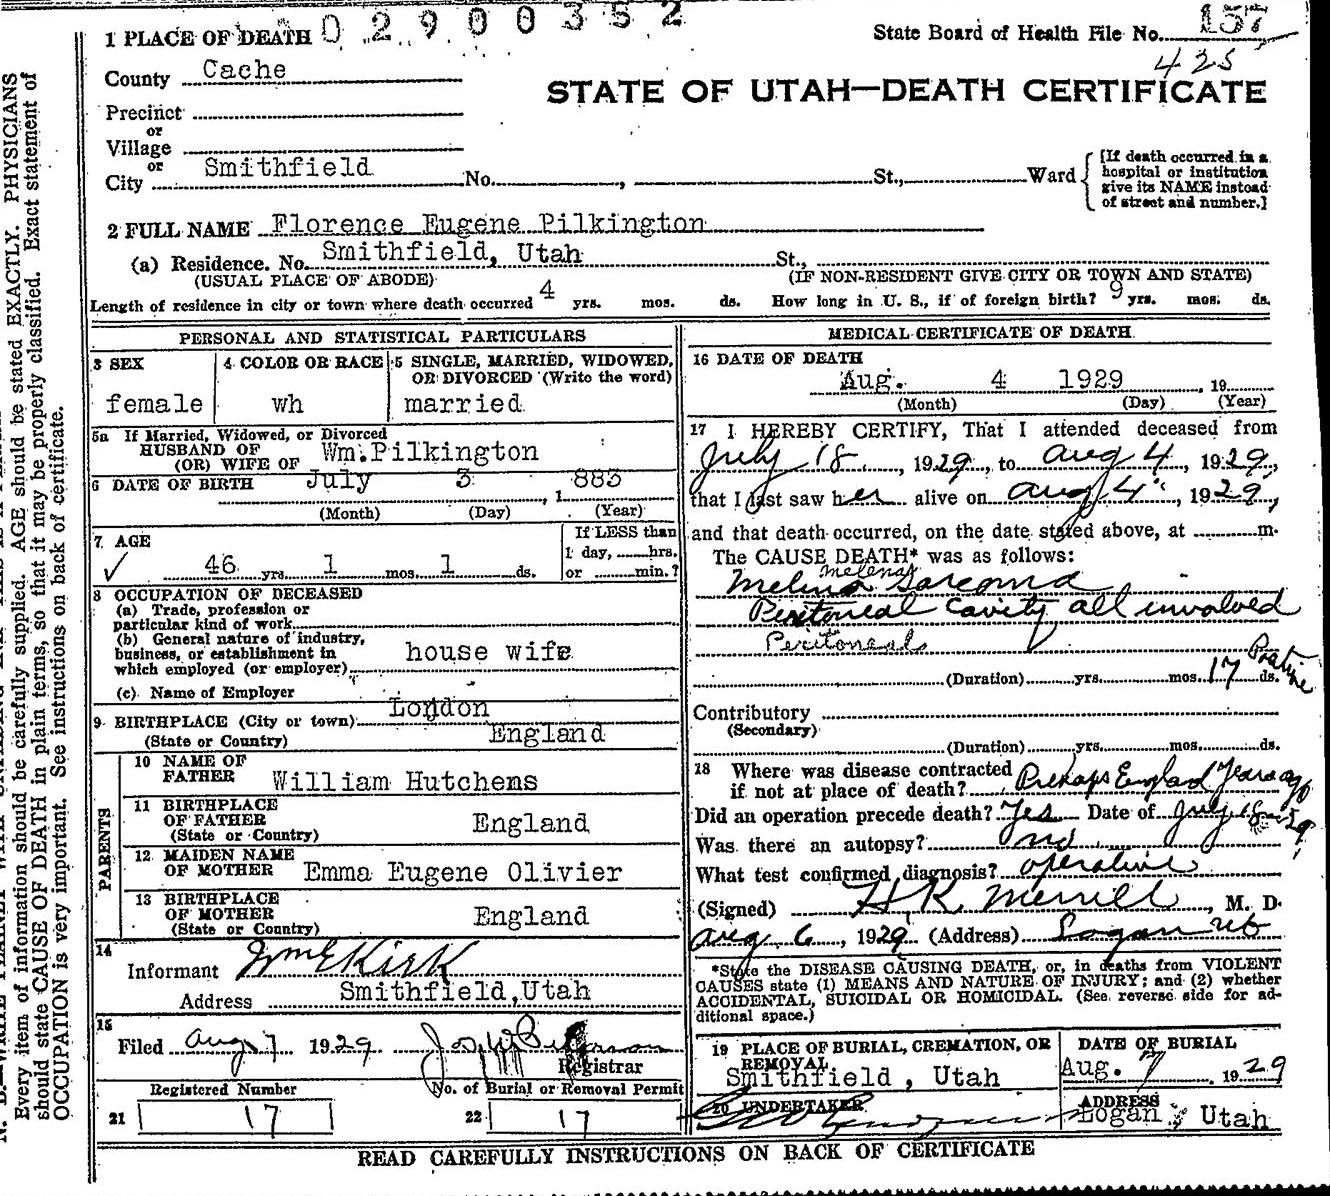 1 PLACE OF DEATH 02900352
State Board of Health File No. 157
435
County Cache
STATE OF UTAH—DEATH CERTIFICATE
Precinct
or
Village
or
City Smithfield No. , St., Ward
[If death occurred in a
hospital or institution
give its NAME instead
of street and number.]
2 FULL NAME Florence Eugene Pilkington
(a) Residence. No. Smithfield, Utah St.,
(USUAL PLACE OF ABODE) (IF NON-RESIDENT GIVE CITY OR TOWN AND STATE)
Length of residence in city or town where death occurred 4 yrs. mos. ds. How long in U. S., if of foreign birth? 9 yrs. mos. ds.
PERSONAL AND STATISTICAL PARTICULARS
3 SEX
female
4 COLOR OR RACE
wh
5 SINGLE, MARRIED, WIDOWED,
OR DIVORCED (Write the word)
married
5a If Married, Widowed, or Divorced
HUSBAND OF
(OR) WIFE OF Wm. Pilkington
6 DATE OF BIRTH July 3, 1 883
(Month) (Day) (Year)
7 AGE
✓ 46 yrs. 1 mos. 1 ds.
If LESS than
1 day, hrs.
or min.?
8 OCCUPATION OF DECEASED
(a) Trade, profession or
particular kind of work
(b) General nature of industry,
business, or establishment in
which employed (or employer) house wife
(c) Name of Employer
9 BIRTHPLACE (City or town) London
(State or Country) England
PARENTS
10 NAME OF
FATHER William Hutchens
11 BIRTHPLACE
OF FATHER
(State or Country) England
12 MAIDEN NAME
OF MOTHER Emma Eugene Olivier
13 BIRTHPLACE
OF MOTHER
(State or Country) England
14
Informant Wm E Kirk
Address Smithfield, Utah
15
Filed Aug 7 1929
Registrar
Registered Number
21 17
No. of Burial or Removal Permit
22 17
MEDICAL CERTIFICATE OF DEATH
16 DATE OF DEATH
Aug. 4 1929, 19
(Month) (Day) (Year)
17 I HEREBY CERTIFY, That I attended deceased from
July 18, 1929, to Aug 4, 1929,
that I last saw her alive on Aug 4, 1929,
and that death occurred, on the date stated above, at m.
The CAUSE DEATH* was as follows:
Sarcoma
Peritoneal Cavity all involved
Peritoneals
(Duration) yrs. mos. 17 ds.
Contributory
(Secondary)
(Duration) yrs. mos. ds.
18 Where was disease contracted
if not at place of death? Perhaps England Years ago
Did an operation precede death? Yes Date of July 18-29
Was there an autopsy? no
What test confirmed diagnosis? operative
(Signed) H K Merrill, M. D.
Aug 6, 1929 (Address) Logan Ut
*State the DISEASE CAUSING DEATH, or, in deaths from VIOLENT
CAUSES state (1) MEANS AND NATURE OF INJURY; and (2) whether
ACCIDENTAL, SUICIDAL OR HOMICIDAL. (See reverse side for ad-
ditional space.)
19 PLACE OF BURIAL, CREMATION, OR
REMOVAL
Smithfield, Utah
DATE OF BURIAL
Aug. 7, 1929
20 UNDERTAKER
ADDRESS
Logan, Utah
READ CAREFULLY INSTRUCTIONS ON BACK OF CERTIFICATE
Every item of information should be carefully supplied. AGE should be stated EXACTLY. PHYSICIANS
should state CAUSE OF DEATH in plain terms, so that it may be properly classified. Exact statement of
OCCUPATION is very important. See instructions on back of certificate.